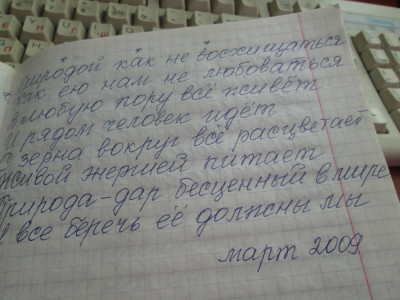 Природой как не восхищаться
Как ею нам не любоваться
В любую пору всё живёт
И рядом человек идёт
зерна вокруг всё расцветает
Живой энергией питает
Природа-дар бесценный в мире
И все беречь её должны мы
март 2009